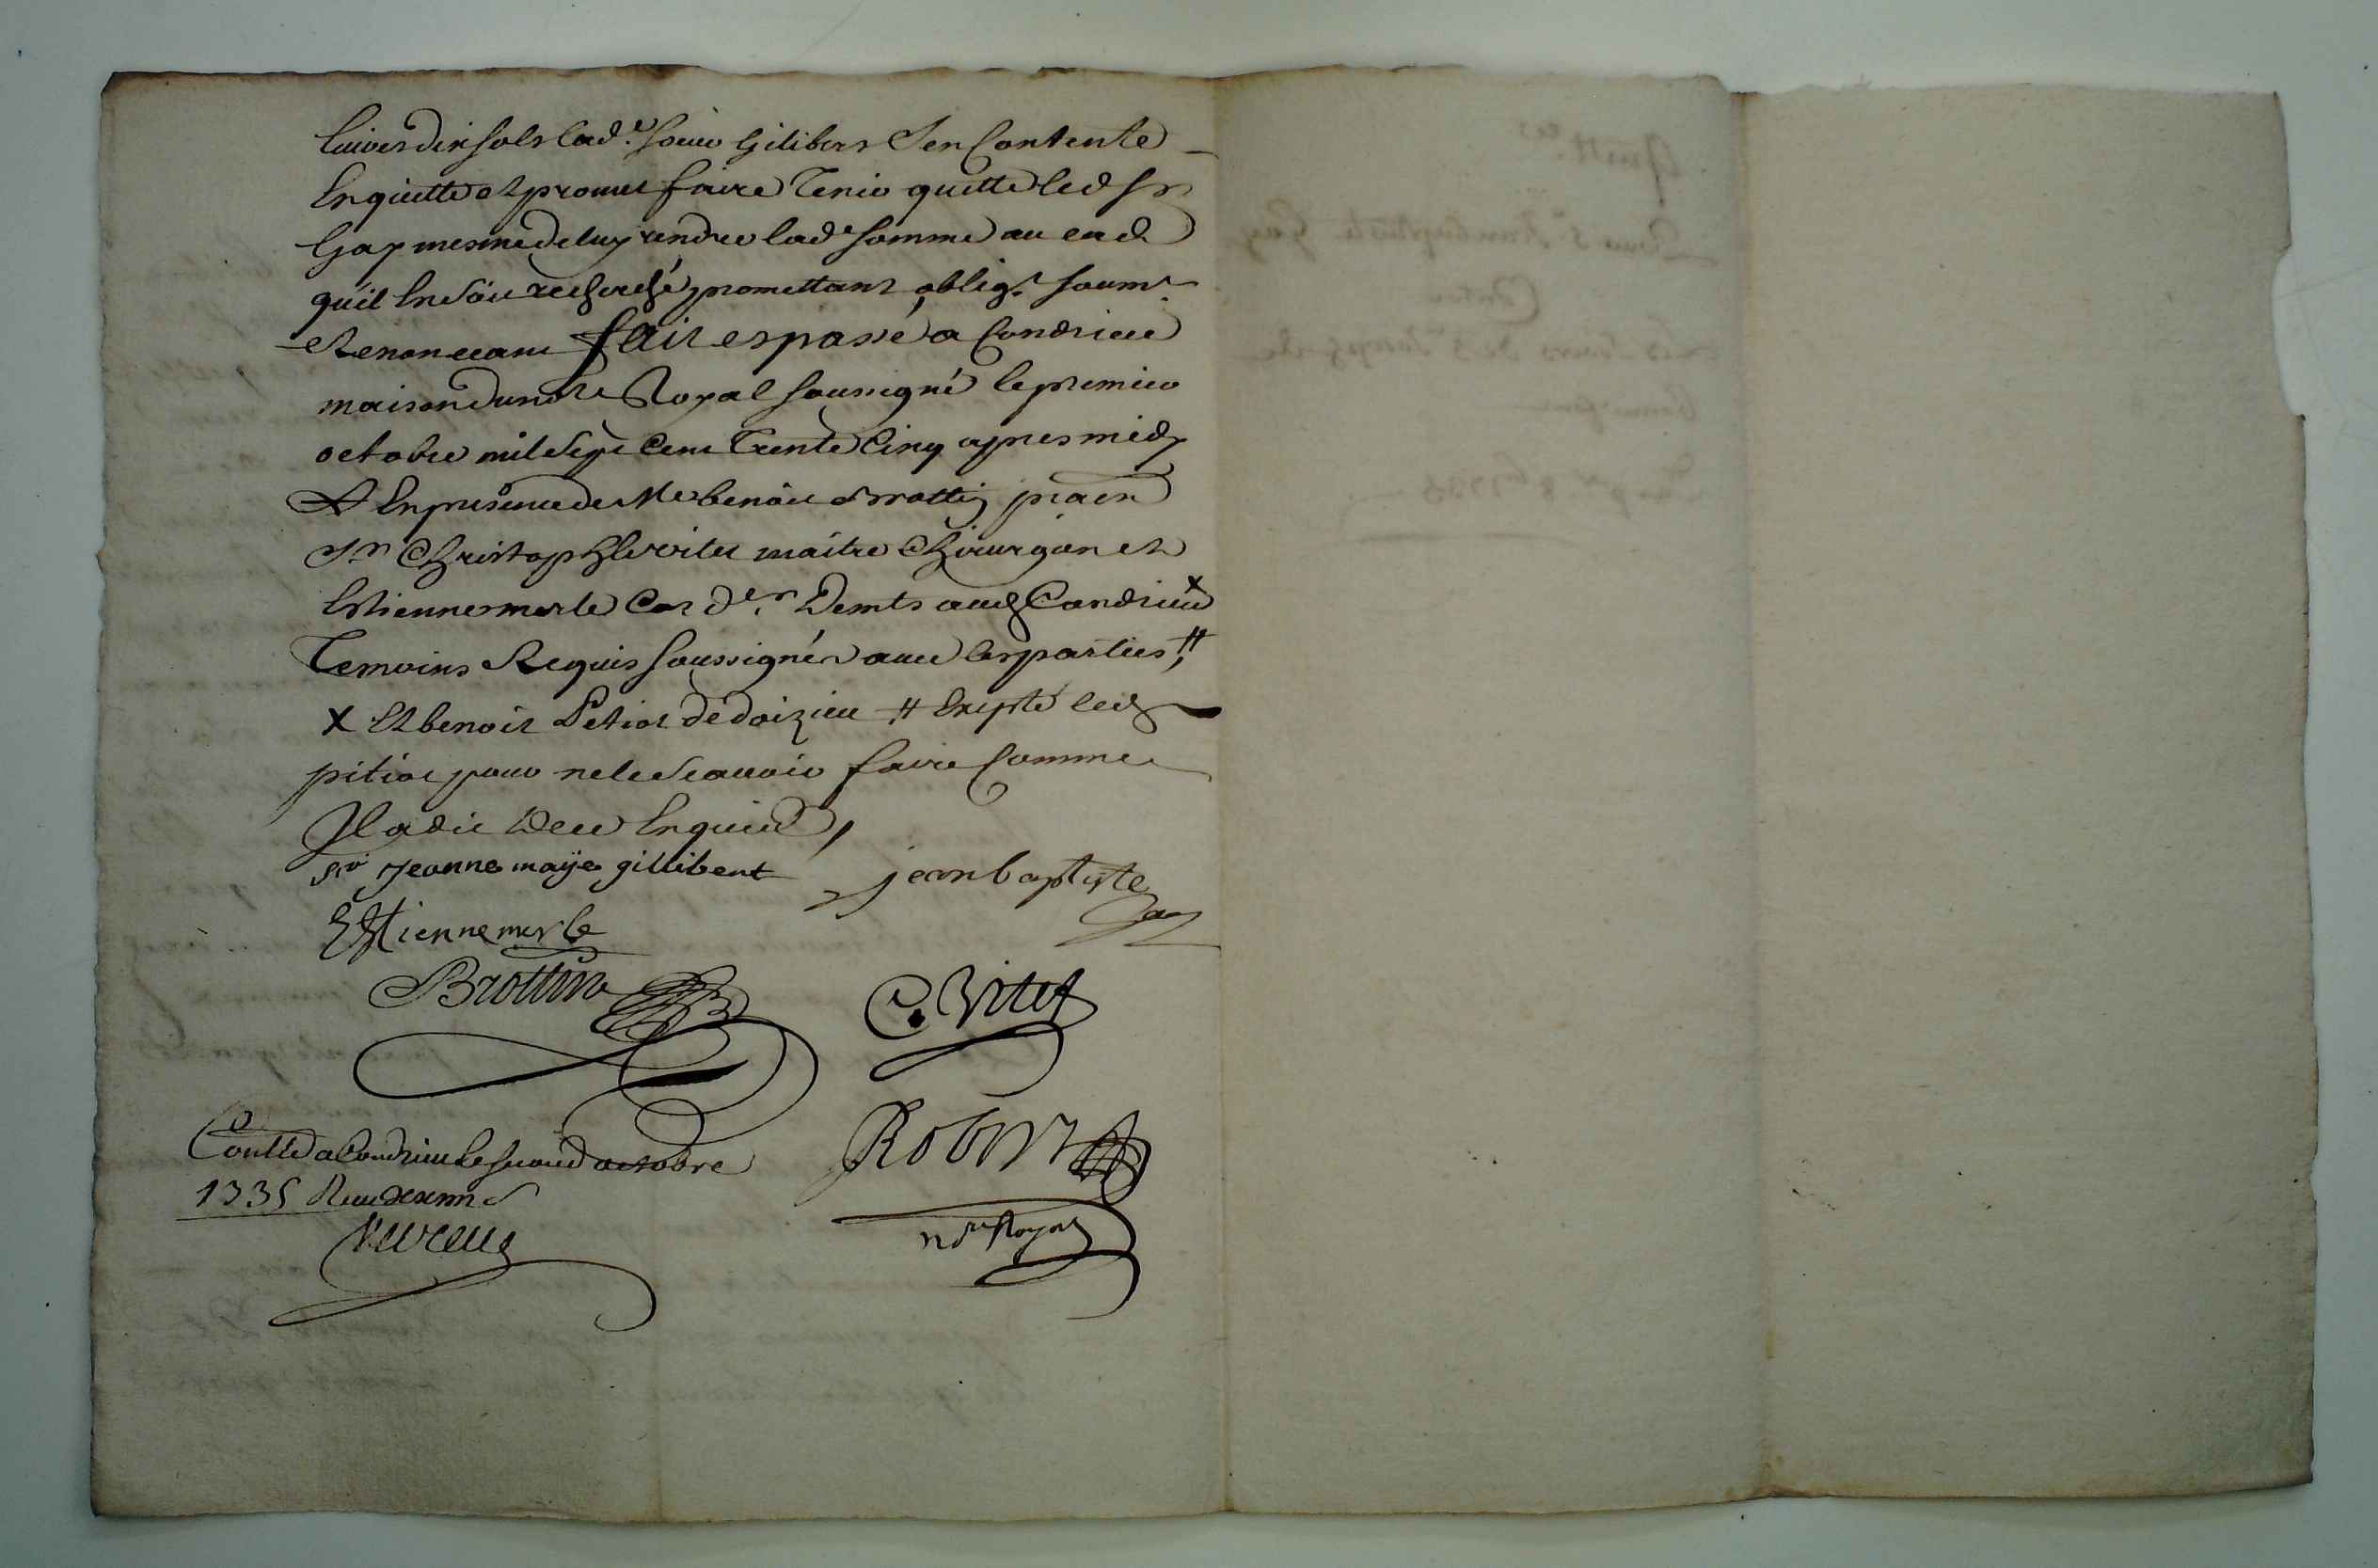 Livres dix sols lad.e Soeur Gilibert Sen Contente
En quitte et promet faire Tenir quitte led Sr
Gay mesme de luy rendre lade somme au cas
quil En Soit recherché promettant oblig.t soum.t
et Renonceant fait et passé a Condrieu
maison du no.re Royal soussigné le premier
octobre mil Sept Cent Trente Cinq apres midy
En presence de Me benoit Brottin
Sr Christophle vitet maitre Chirurgien et
Estienne merle Cord.er Demts aud Condrieu X
Temoins Requis soussignés avec les parties #
X Et benoit Petiot de doizieu # Excepté led
pitiot pour ne le Scavoir faire Comme
Il a dit De ce Enquis
sr jeanne maÿe gillibert
jean baptiste
Gay
Estienne merle
Brottin
C. Vitet
Con.tlé a Condrieu le second octobre
1735 Receu
Robert
n.re Royal